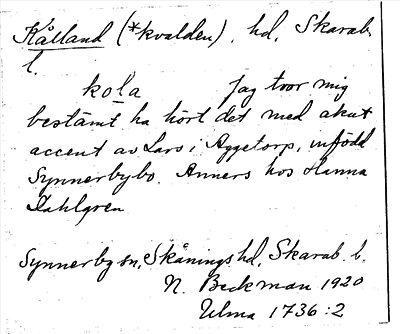 Kålland (*kvalden), hd, Skarab.
l.
kola jag tror mig
bestämt ha hört det med akut
accent av Lars i Aggetorp, infödd
Synnerbybo. Anners hos Hanna
Dahlgren
Synnerby sn, Skånings hd, Skarab. l.
N. Beckman 1920
Ulma 1736:2